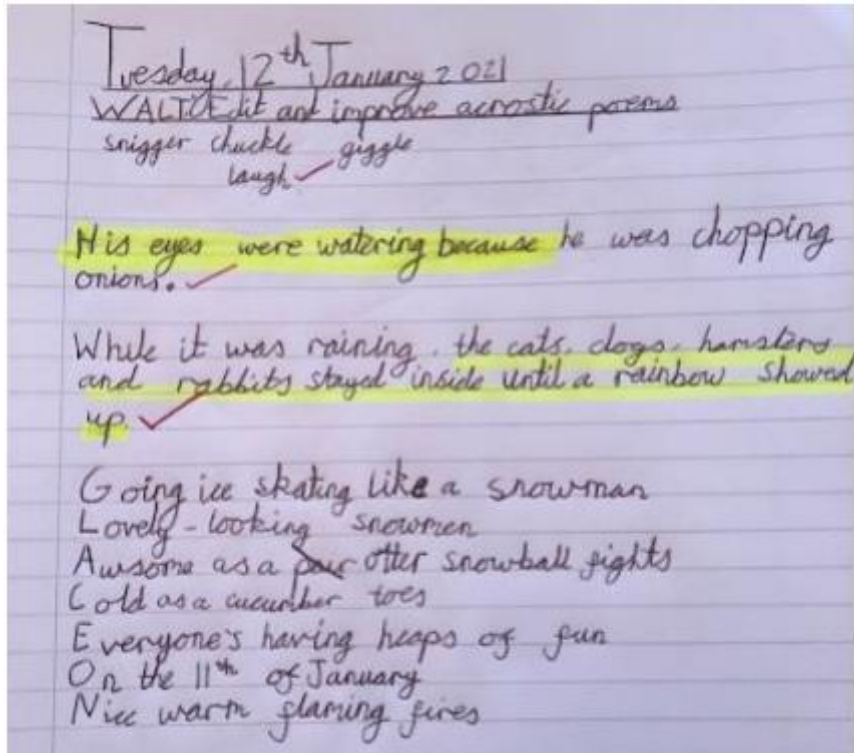 Tuesday, 12th January 2021
WALT: Edit and improve acrostic poems
snigger chuckle giggle
laugh
His eyes were watering because he was chopping
onions.
While it was raining, the cats, dogs, hamsters
and rabbits stayed inside until a rainbow showed
up.
Going ice skating like a snowman
Lovely-looking snowmen
Awsome as a otter snowball fights
Cold as a cucumber toes
Everyone's having heaps of fun
On the 11th of January
Nice warm flaming fires